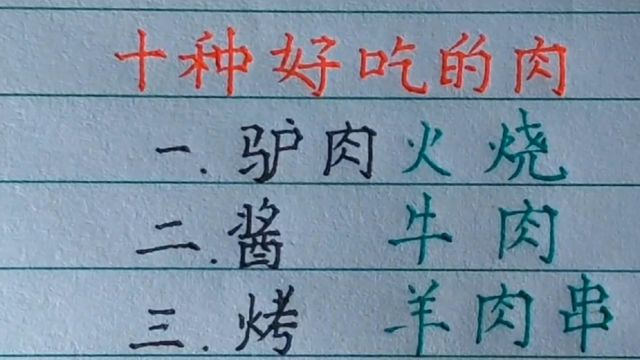 十种好吃的肉
一.驴肉火烧
二.酱 牛肉
三.烤 羊肉串